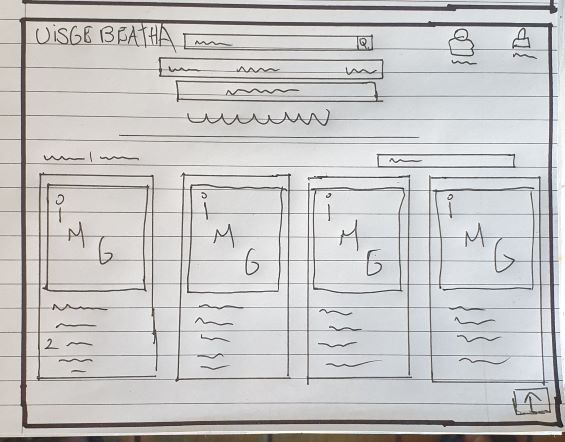 UISGE BEATHA
Q
i M G
i M G
i M G
i M G
2